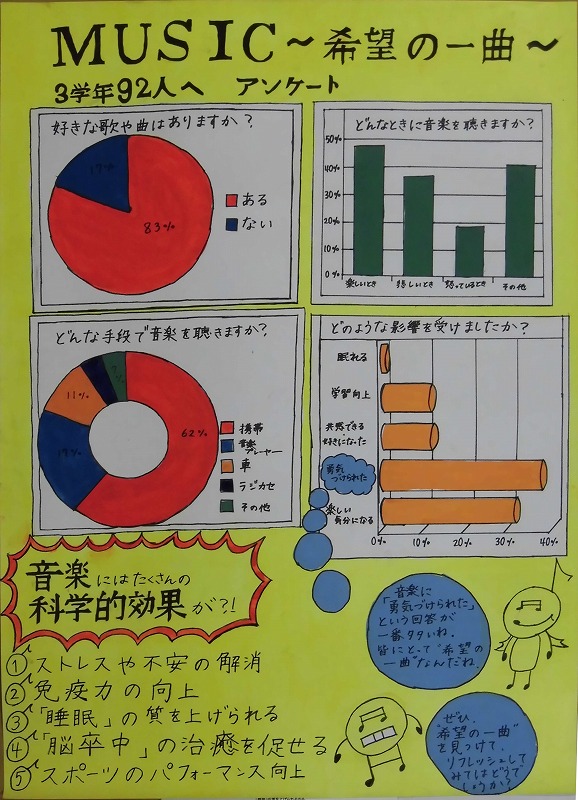 MUSIC～希望の一曲～
3学年92人へ　アンケート
好きな歌や曲はありますか?
17%
83%
ある
ない
どんなときに音楽を聴きますか?
50%
40%
30%
20%
10%
0%
楽しいとき
悲しいとき
怒っているとき
その他
どんな手段で音楽を聴きますか?
62%
19%
11%
携帯
音楽
プレーヤー
車
ラジカセ
その他
どのような影響を受けましたか?
眠れる
学習向上
共感できる
好きになった
勇気
づけられた
楽しい
気分になる
0%
10%
20%
30%
40%
音楽にはたくさんの
科学的効果が?!
① ストレスや不安の解消
② 免疫力の向上
③ 「睡眠」の質を上げられる
④ 「脳卒中」の治癒を促せる
⑤ スポーツのパフォーマンス向上
音楽に
「勇気づけられた」
という回答が
一番多いね。
皆にとって"希望の
一曲"なんだね。
ぜひ、
"希望の一曲"
を見つけて、
リフレッシュして
みてはどうで
しょうか?